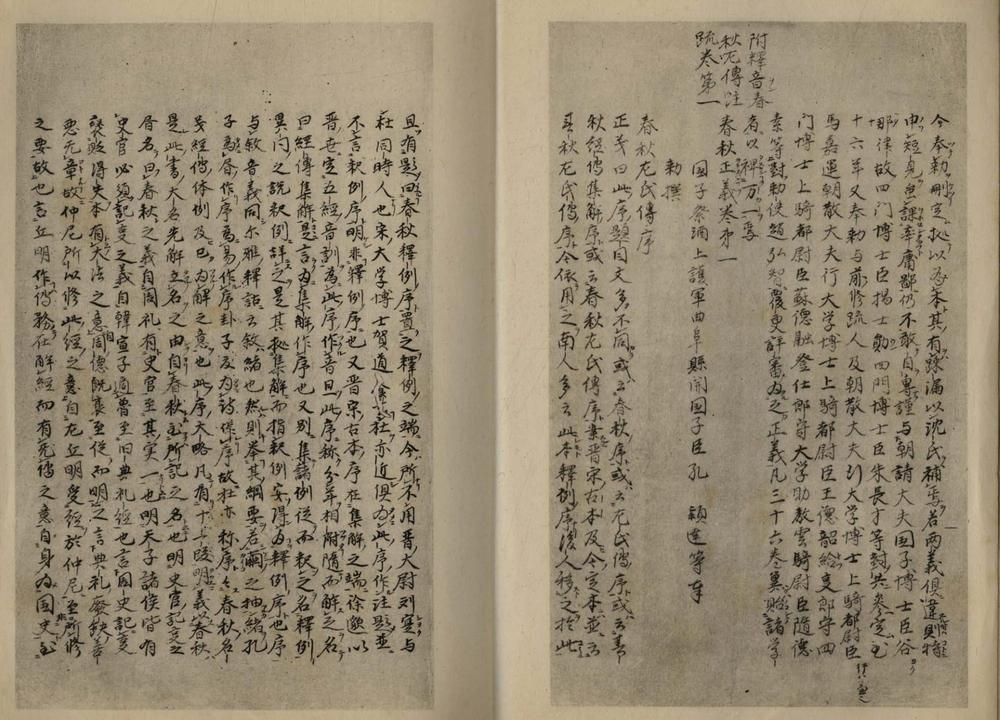 今奉勅刪定據以為本其有踈漏以沈氏補焉若兩義俱違則特
申短見雖課率庸鄙仍不敢自專謹与朝請大夫国子博士臣谷
那律故四門博士臣楊士勛四門博士臣朱長才等對共參定至
十六年又奉勅与前修疏人及朝散大夫行大学博士上騎都尉臣
馬嘉運朝散大夫行大学博士上騎都尉臣王德韶給事郎守四
門博士上騎都尉臣蘇德融登仕郎守大学助教雲騎尉臣隨德
素等對勅使趙弘智覆更詳審為之正義凡三十六卷冀貽諸学
者以裨万一焉
附釋音春
秋左傳注
疏卷第一
春秋正義卷第一
国子祭酒上護軍曲阜縣開国子臣孔穎達等奉
勅撰
春秋左氏傳序
正義曰此序題目文多不同或云春秋序或云左氏傳序或云春
秋經傳集解序或云春秋左氏傳序案晋宋古本及今定本並云
春秋左氏傳序今依用之南人多云此本釋例序後人移之於此
且有題曰春秋釋例序置之釋例之端今所不用晋大尉刘寔与
杜同時人也宋大学博士賀道養去杜亦近俱為此序作注題並
不言釈例序明非釋例序也又晋宋古本序在集解之端徐邈以
晋世定五經音訓為此序作音且此序称分年相附隨而解之名
曰經傳集解是言為集解作序也又別集諸例從而釈之名釋例
異同之說釈例詳之是其據集解而指釈例安得為釋例序也序
与敘音義同尓雅釋詁云敘緒也然則舉其綱要若繭之抽緒孔
子為書作序為易作序卦子夏为詩作序故杜亦称序々春秋名
義經傳体例及已为解之意也此序大略凡有十一段明義春秋
是此書大名先解立名之由自春秋至所記之名也明史官記事之
書名曰春秋之義自周礼有史官至其実一也明天子諸侯皆有
史官必須記事之義自韓宣子適魯至旧典礼經也言周史記事
襃貶得失本有大法之意自周德既衰至從而明之言典礼廢缺善
悪无章故仲尼所以修此經之意自左丘明受經於仲尼至所修
之要故也言丘明作傳務在解經而有无傳之意自身为国史至